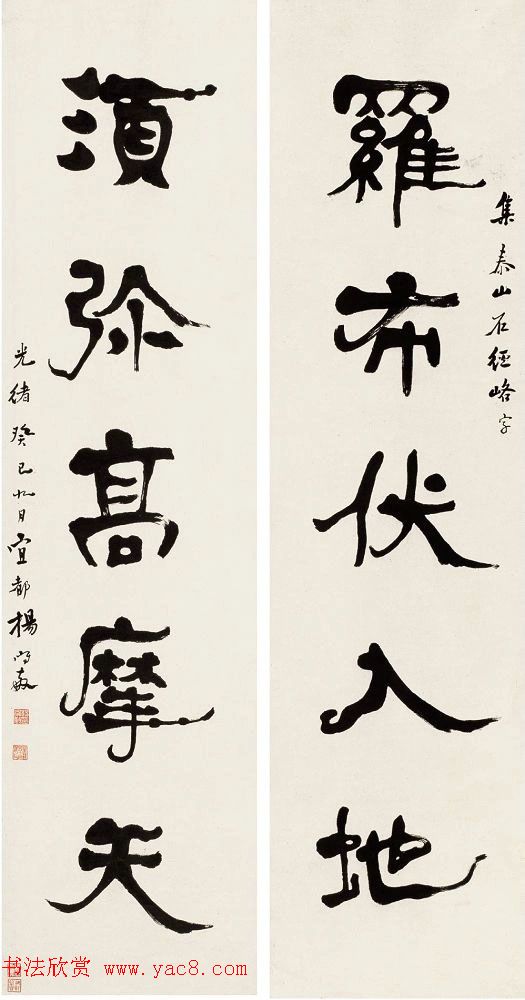 羅布伏入地
集泰山石經峪字
須弥高摩天
光緒癸巳秋日宜都楊守敬
书法欣赏 www.yac8.com